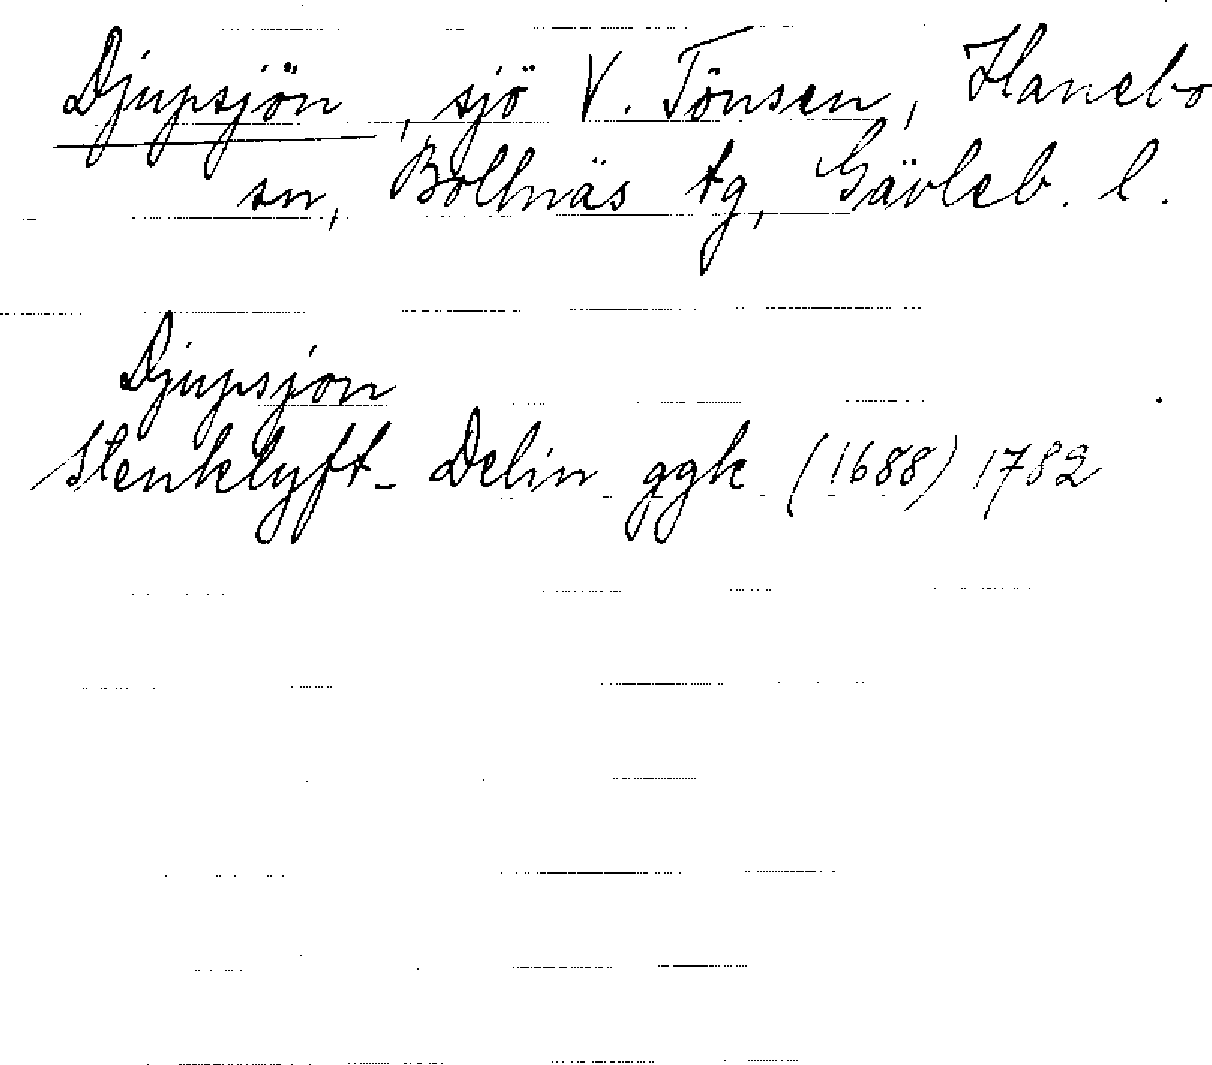 Djupsjön, sjö V. Tönsen, Hanebo
sn, Bollnäs tg, Gävleb. l.
Djupsjon
Stenklyft- Delin ggk (1688) 1782